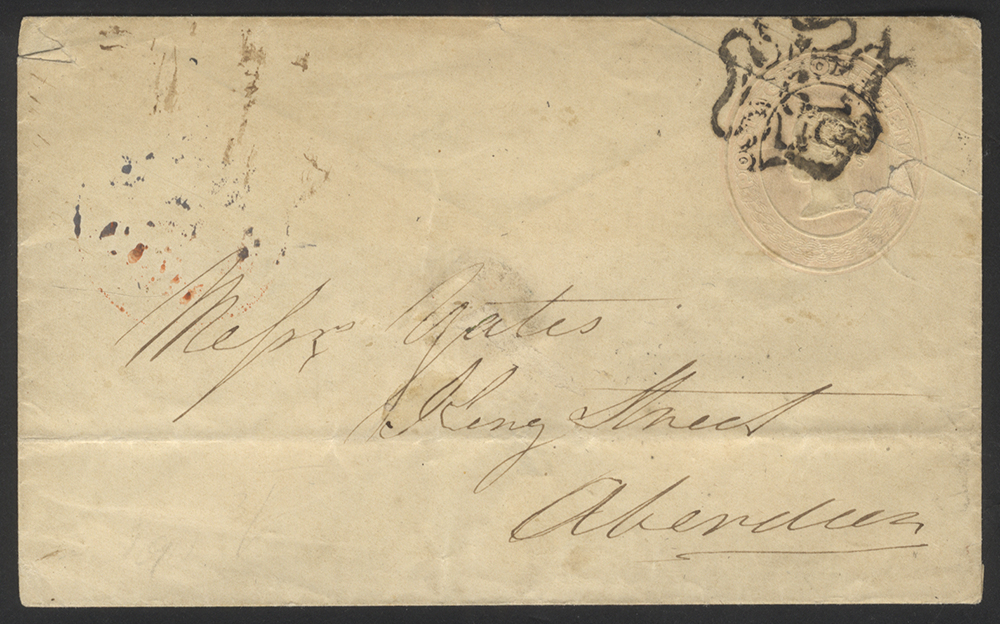 Messrs Yates
King Street
Aberdeen